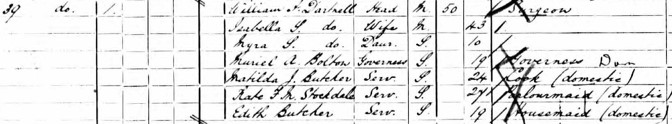 39 do. 1 William A. Darknell Head M. 50 Surgeon
Isabella S. do. Wife M. 43
Myra S. do. Daur. S. 10
Muriel A. Bolton Governess S. 19 Governess Dom
Matilda J. Butcher Serv. S. 24 Cook (domestic)
Kate F. M. Stockdale Serv. S. 27 Parlourmaid (domestic)
Edith Butcher Serv. S. 19 Housemaid (domestic)